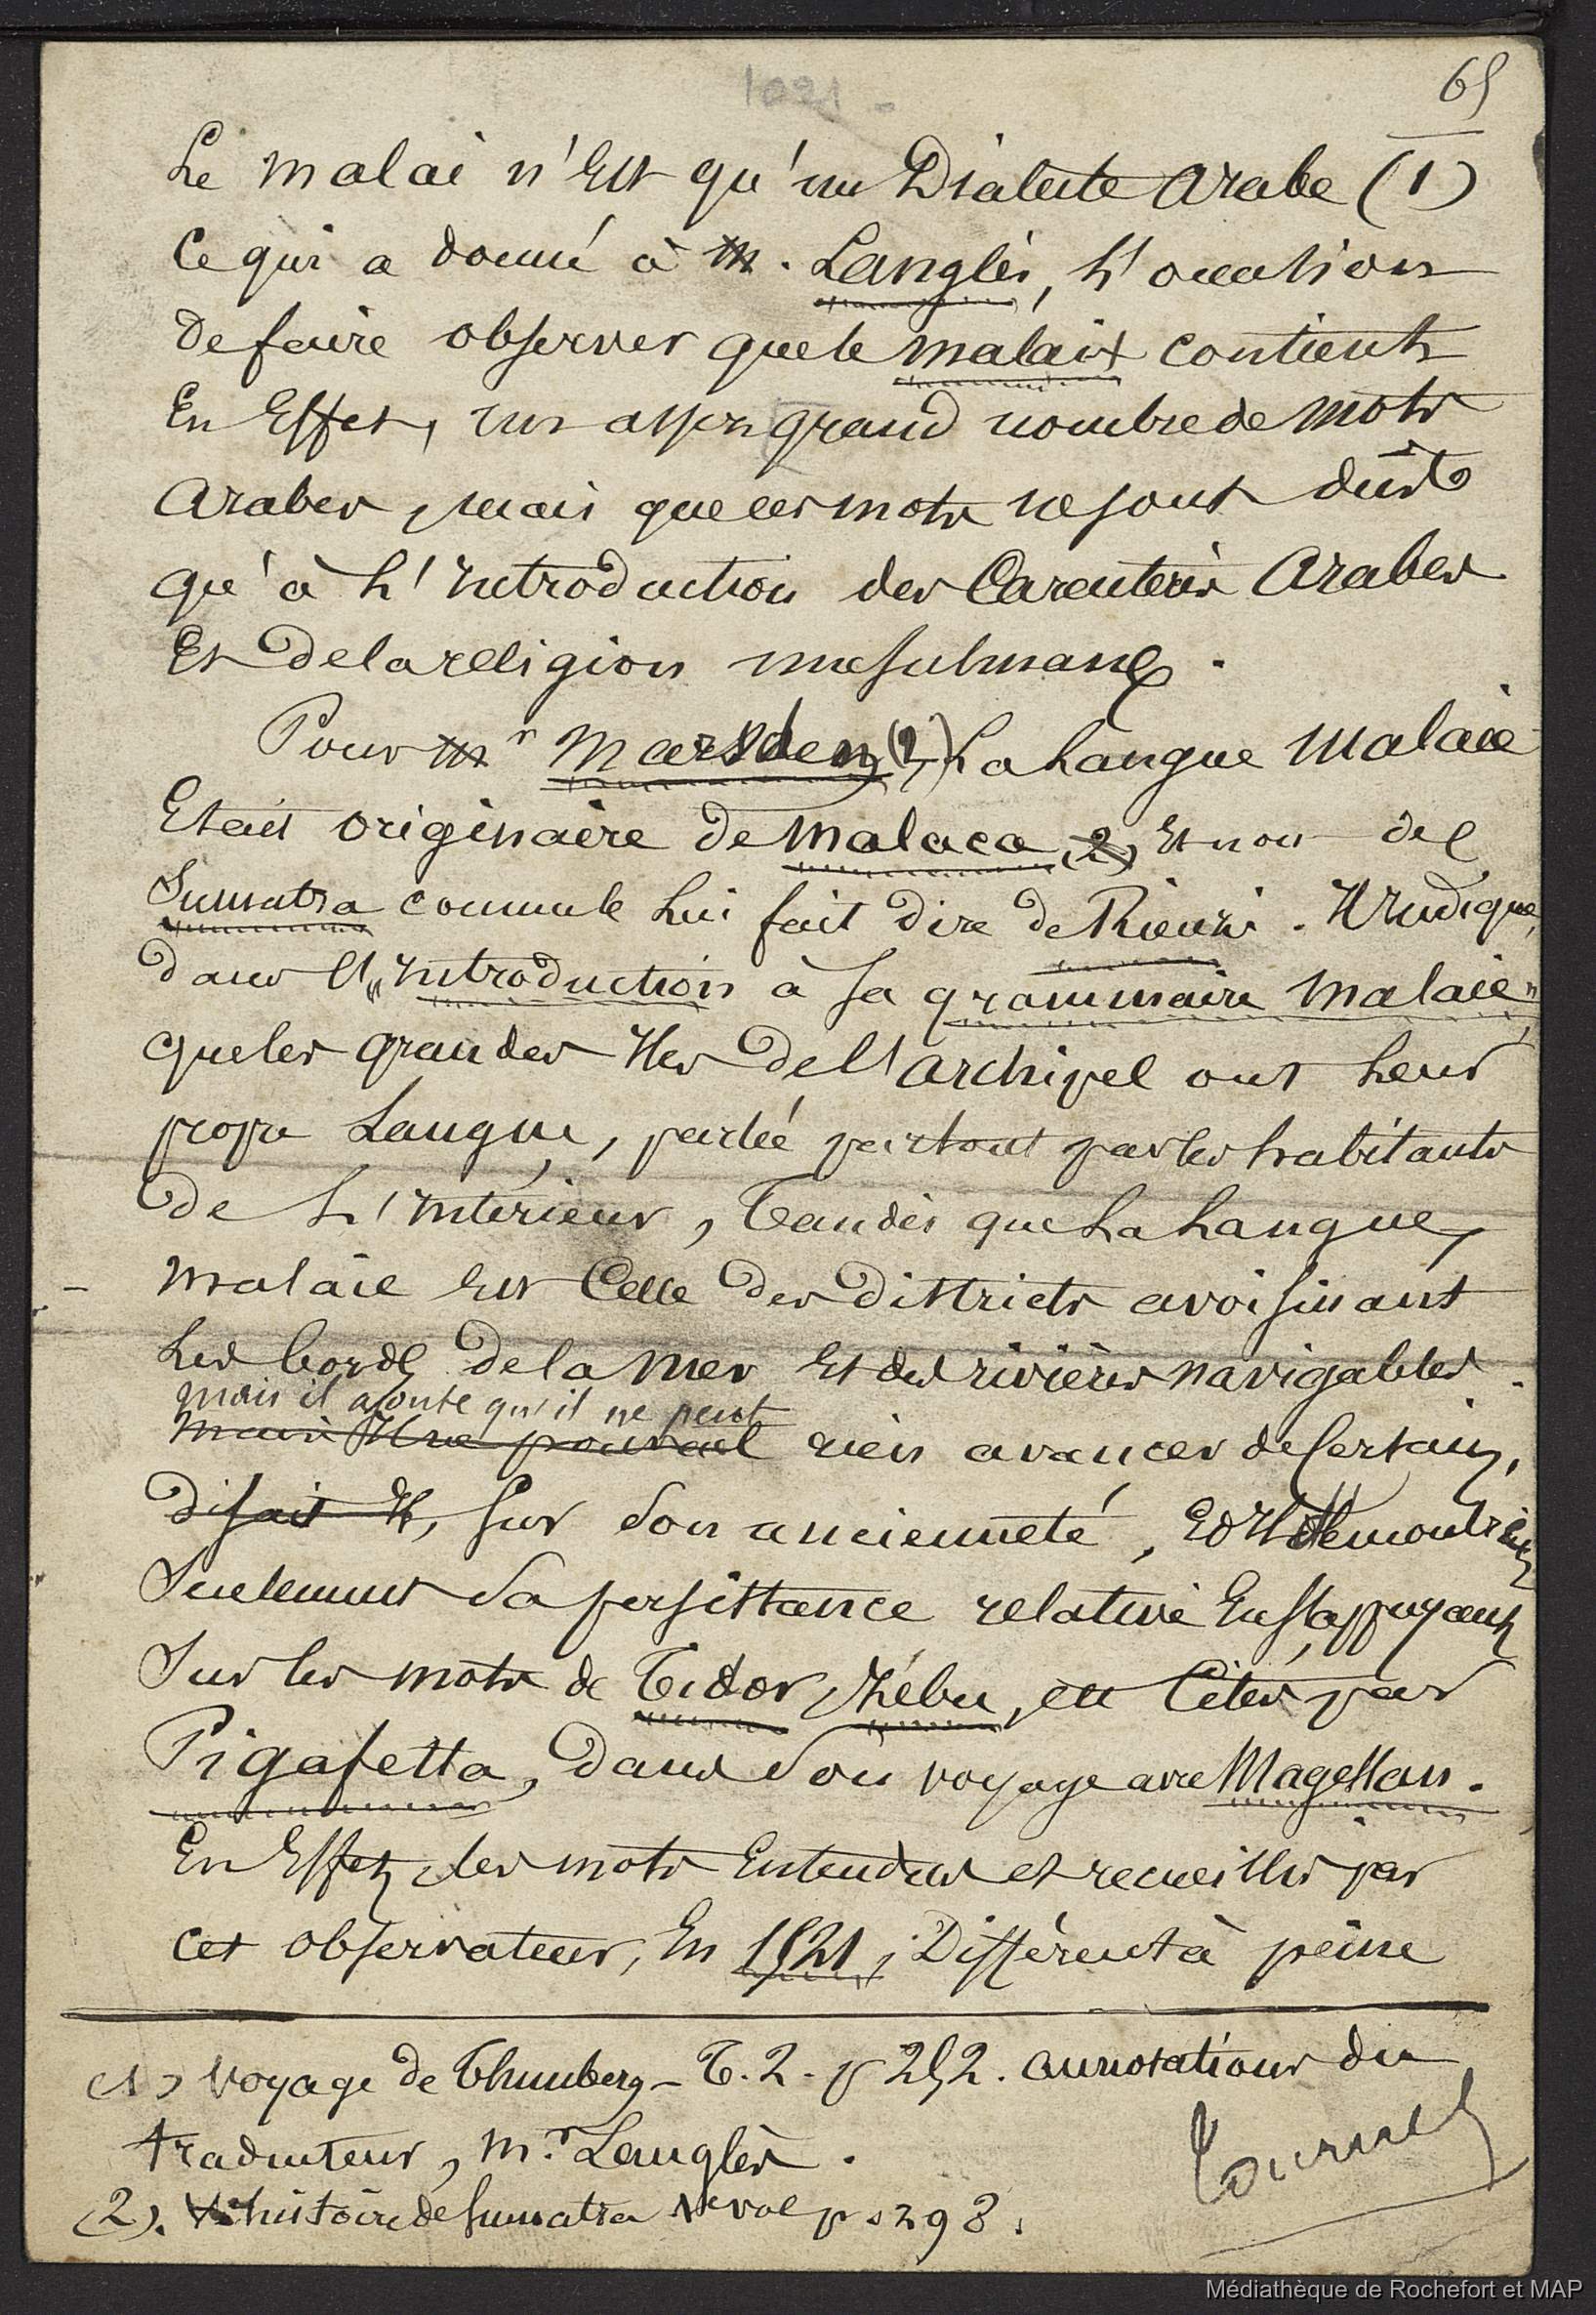 1021 -
65
Le malai n'Est qu'un Dialecte Arabe (1)
Ce qui a donné à M. Langlès, L'occasion
de faire observer que le malais contient
En Effet, un assez grand nombre de mots
Arabes, mais que ces mots ne sont dûs
qu'à L'Introduction des Caractères Arabes
Et de la religion musulmane.
Pour Mr Marsden (2), La Langue Malaie
Etait originaire de Malaca (2) Et non de
Sumatra comme le Lui fait dire de Rienzi. Il Indique,
dans l'"Introduction à sa grammaire Malaie"
que les grandes Iles de l'Archipel ont Leur
propre Langue, parlée partout par les habitants
de L'Intérieur, Tandis que La Langue
Malaie Est Celle des Districts avoisinant
Les bords de la Mer Et des rivières navigables.
mais il ajoute qu'il ne peut
Mais Il ne pouvait rien avancer de Certain,
disait Il, sur son ancienneté, Et Il démontre
Seulement sa persistance relative En s'appuyant
Sur les mots de Tidor, Zébu, Cités par
Pigafetta, dans son voyage avec Magellan.
En Effet, les mots Entendus et recueillis par
cet observateur, En 1521, Diffèrent à peine
(1) Voyage de Thunberg - T. 2. p 252. annotations du
traducteur, Mr. Langlès.
(2). histoire de Sumatra vol p 298.
Médiathèque de Rochefort et MAP